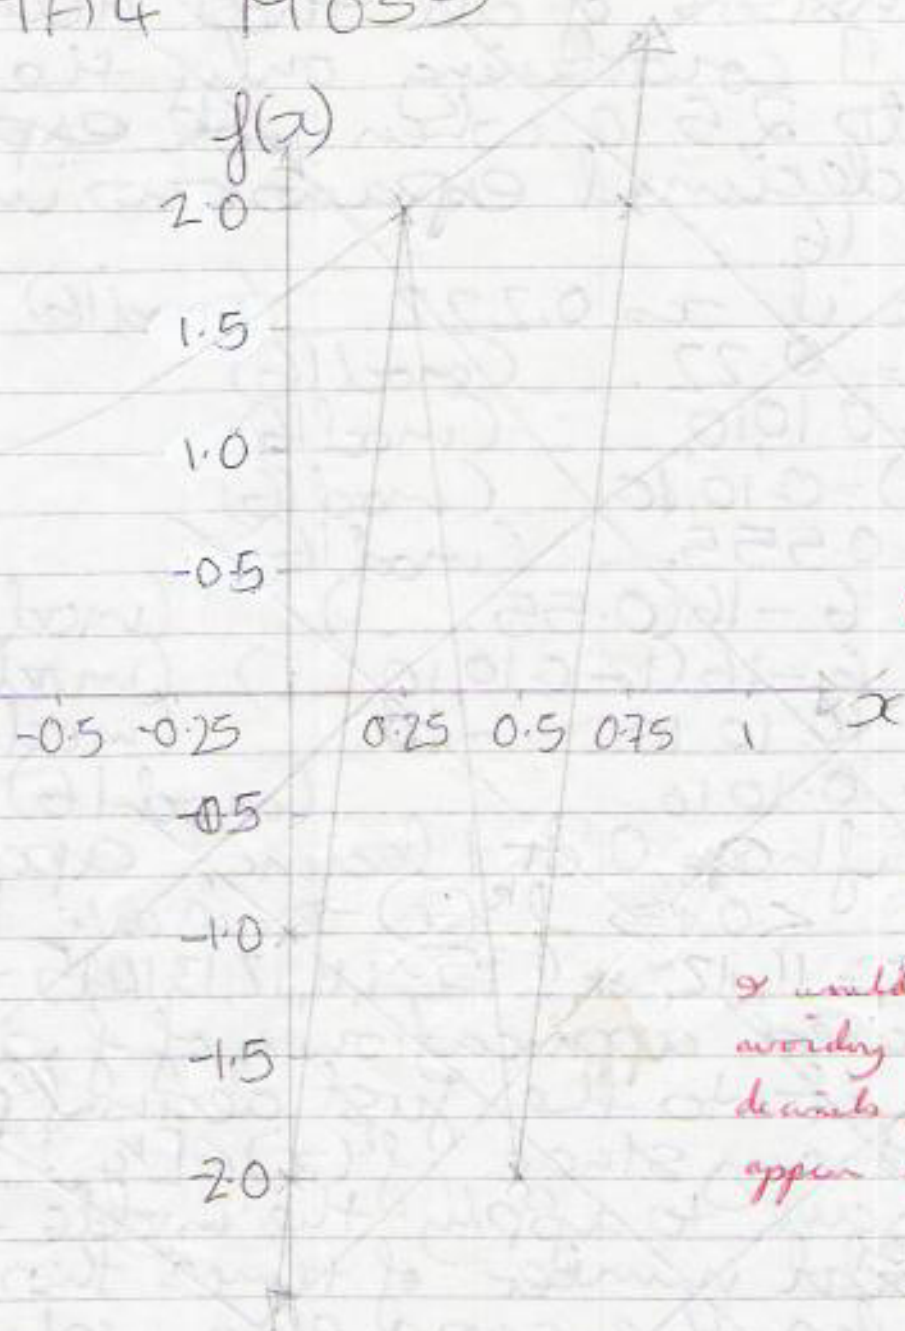 f(x)
2.0
1.5
1.0
-0.5
-0.5 -0.25 0.25 0.5 0.75 1 x
-0.5
-1.0
-1.5
-2.0
I would
avoiding
decimals
appear